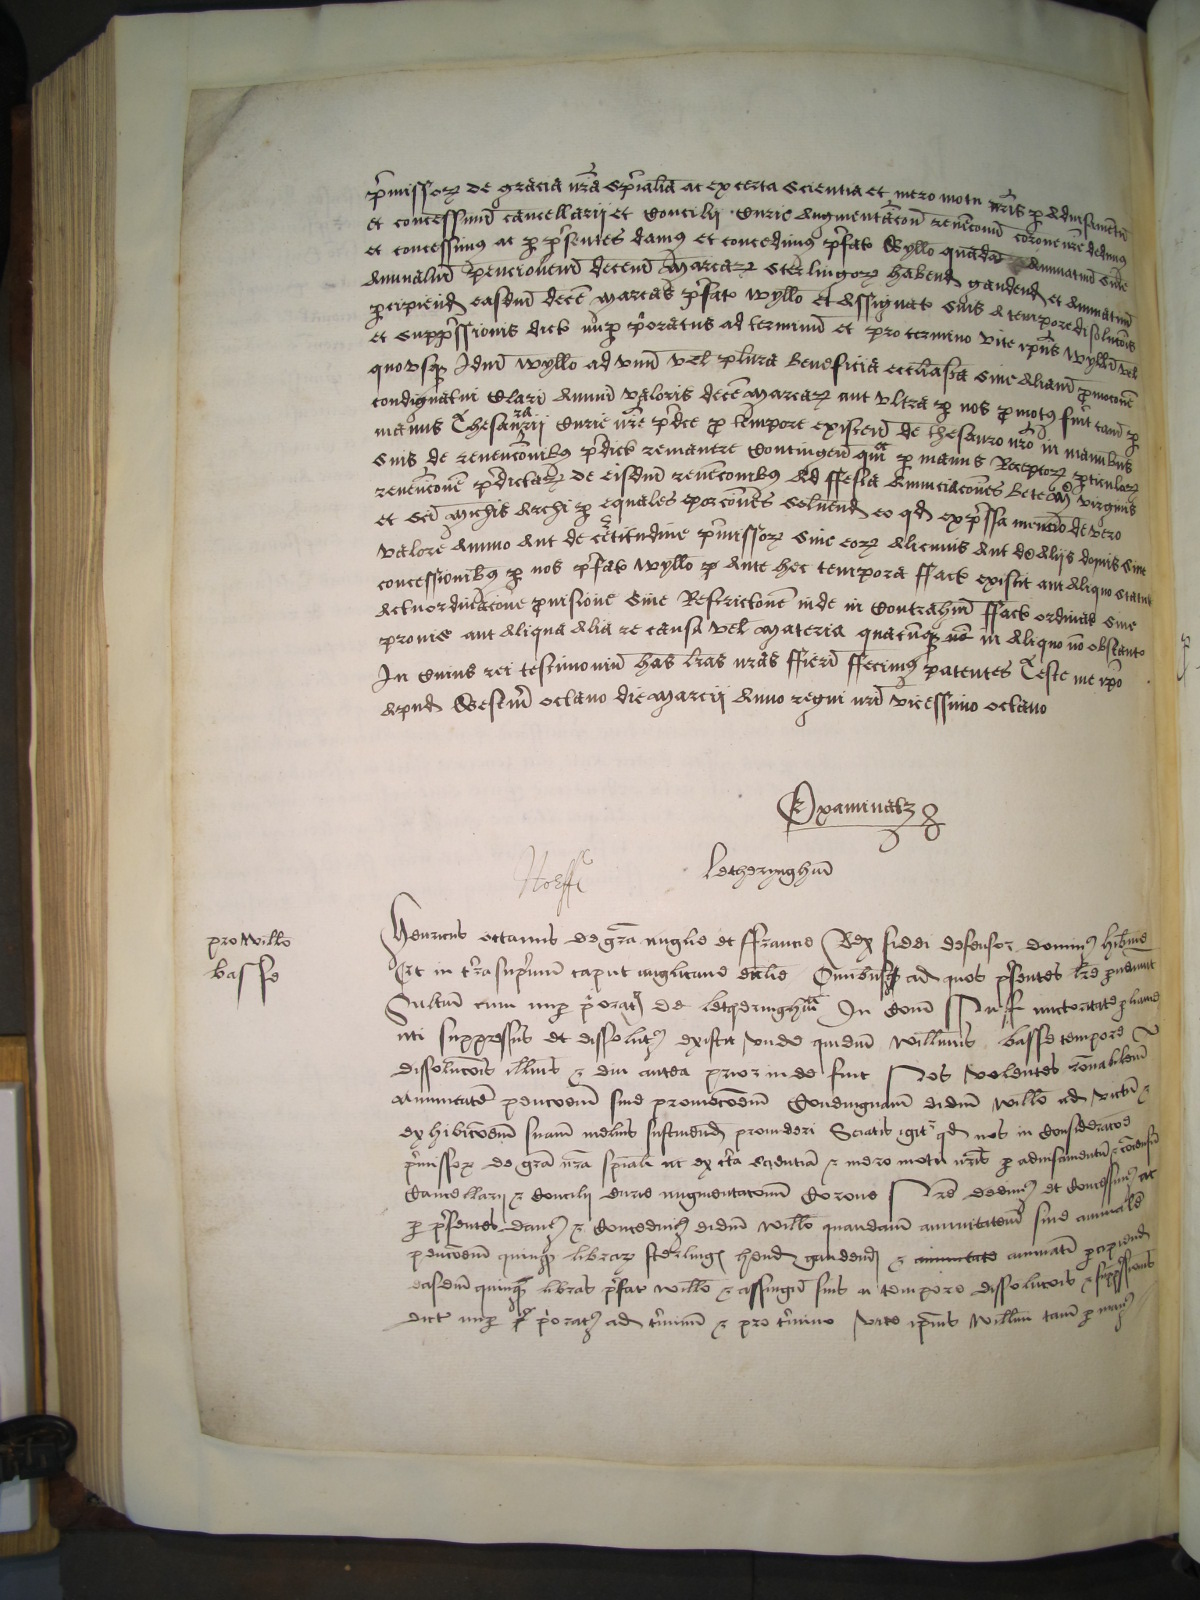 p'missorz de gracia n'ra sp'iali ac ex certa scientia et mero motu n'ris p advisamentu
et concessum cancellarij et Concilij Curie Augmentacou revencoum corone n're dedimus
et concessimus ac p p'sentes damus et concedimus p'fato Wyllo quadā Annuatim sive
Annualem pencionem decem Marcarz sterlingorz habend gaudend et Annuatim
p'cipiend easdem decē Marcas p'fato Wyllo et Assignat suis A tempore disolucois
et supp'ssionis dict nup p'oratus ad terminū et pro termino vite ip'ius Wyllmi vel
quousq Idm Wyllo ad unū vel plura Beneficia eccliastica sive Aliam p'mocoē
condignam Clari Annui valoris decē Marcarz aut ultra p nos p'motus fu'it tam p
manus Thesaurarii Curie n're p'dce p tempore existen de thesauro n'ro in manibus
suis de revencoibus p'dict remanere Contingen q'm p manus Receptorz p'ticularz
revencoē p'dictarz de eisdem revencoibus Ad ffesta Annunciacois Beate Marie virginis
et Sci Michis Archi p equales porcoes solvend eo qd exp'ssa mencio de vero
valore Annuo Aut de c'titudine p'missorz sive eorz Alicuius Aut de Aliis donis sive
concessionibus p nos p'fato Wyllo p Ante hec tempora ffact existit aut Aliquo statut
Actu ordinacione p'visione sive Restrictione inde in Contrarium ffact ordinat sive
provis aut Aliqua Alia re causa vel Materia quacumq in Aliquo non obstante
In Cuius rei testimonium has l'ras n'ras ffieri ffecimus patentes Teste me ip'o
Apud Westm octavo die Marcij Anno regni n'ri vicessimo octavo
Examinatz
Letheryngham
pro Willo
basse
Henricus octavus de gra Anglie et ffrancie Rex fidei defensor dominus hib'nie
Et in t'ra sup'mum caput anglicane ecclie Omnibus ad quos p'sentes l're p'ven'int
Sal'tm cum nup p'orat de letheringham In Com Suff auctoritate p'liamē
nti suppressus et dissolutus existit unde quidem Willmus basse tempore
dissolucois illius & diu antea prior inde fuit Nos volentes ronabilem
Annuitatē pencoem sive promocoem Condignam eidm Willo ad victū &
exhibicoem suam melius sustinend provideri Sciatis igit' qd nos in Consideracoē
p'missorz de gra n'ra sp'iali ac ex c'ta sciencia & mero motu n'ris p advisamentu & cōcensu
Cancellarij & Concilij Curie augmentacoum Corone N're dedimus et Concessimus ac
p p'sentes damus & Concedimus eidm Willo quandam annuitatem sive annualē
pencoem quinq librarz sterlingz hend gaudend & annuitate annuatī p'cipiend
easdem quinq libras p'fat Willo & assingn suis a tempore dissolucois & supp'ssionis
dict nup p'oratus ad t'minū & pro t'mino vite ip'ius Willmi tam p manus